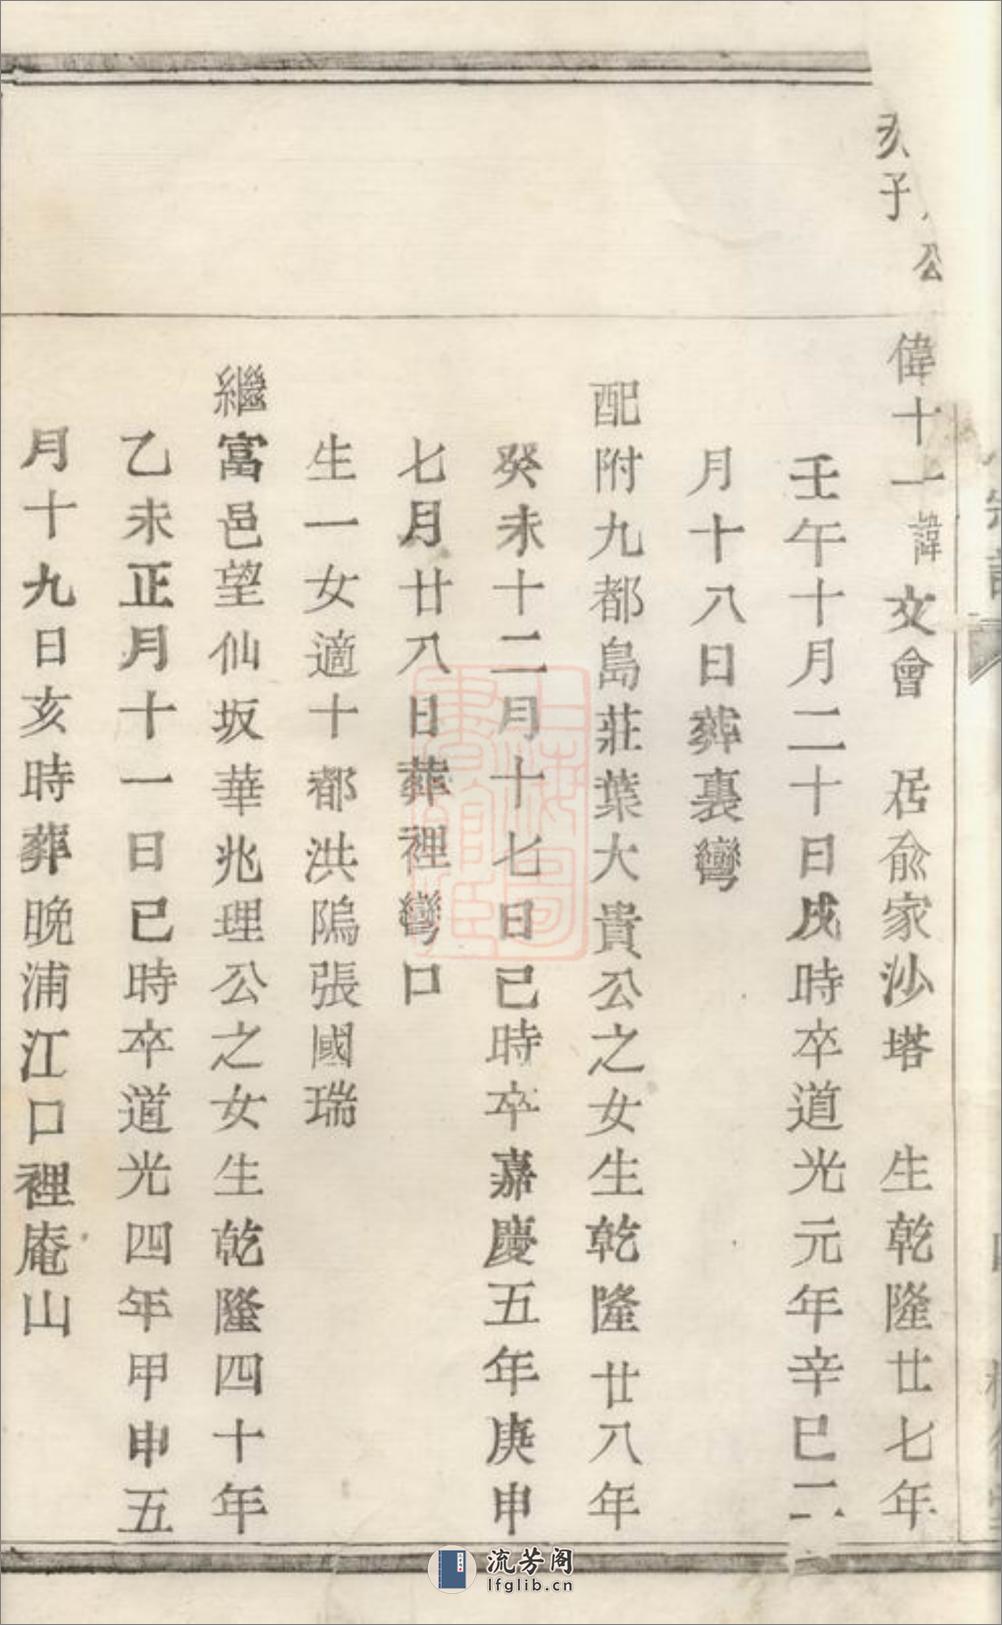 公
子
偉十一諱文會　居俞家沙塔　生乾隆廿七年
壬午十月二十日戌時卒道光元年辛巳二
月十八日葬裏彎
配附九都島莊葉大貴公之女生乾隆廿八年
癸未十二月十七日巳時卒嘉慶五年庚申
七月廿八日葬裡彎口
生一女適十都洪隖張國瑞
繼富邑望仙坂華兆理公之女生乾隆四十年
乙未正月十一日巳時卒道光四年甲申五
月十九日亥時葬晚浦江口裡庵山
上海圖書館藏
流芳阁
lfglib.cn